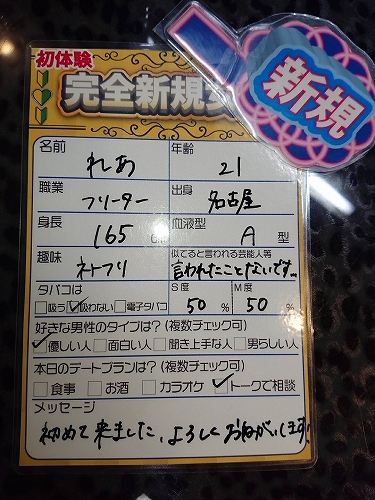 初体験
完全新規
新規
名前 れあ 年齢 21
職業 フリーター 出身 名古屋
身長 165 cm 血液型 A 型
趣味 ネトフリ 似てると言われる芸能人等 言われたことないです。
タバコは S度 M度
吸う 吸わない 電子タバコ 50 % 50 %
好きな男性のタイプは?(複数チェック可)
優しい人 面白い人 聞き上手な人 男らしい人
本日のデートプランは?(複数チェック可)
食事 お酒 カラオケ トークで相談
メッセージ
初めて来ました、よろしくおねがいします!